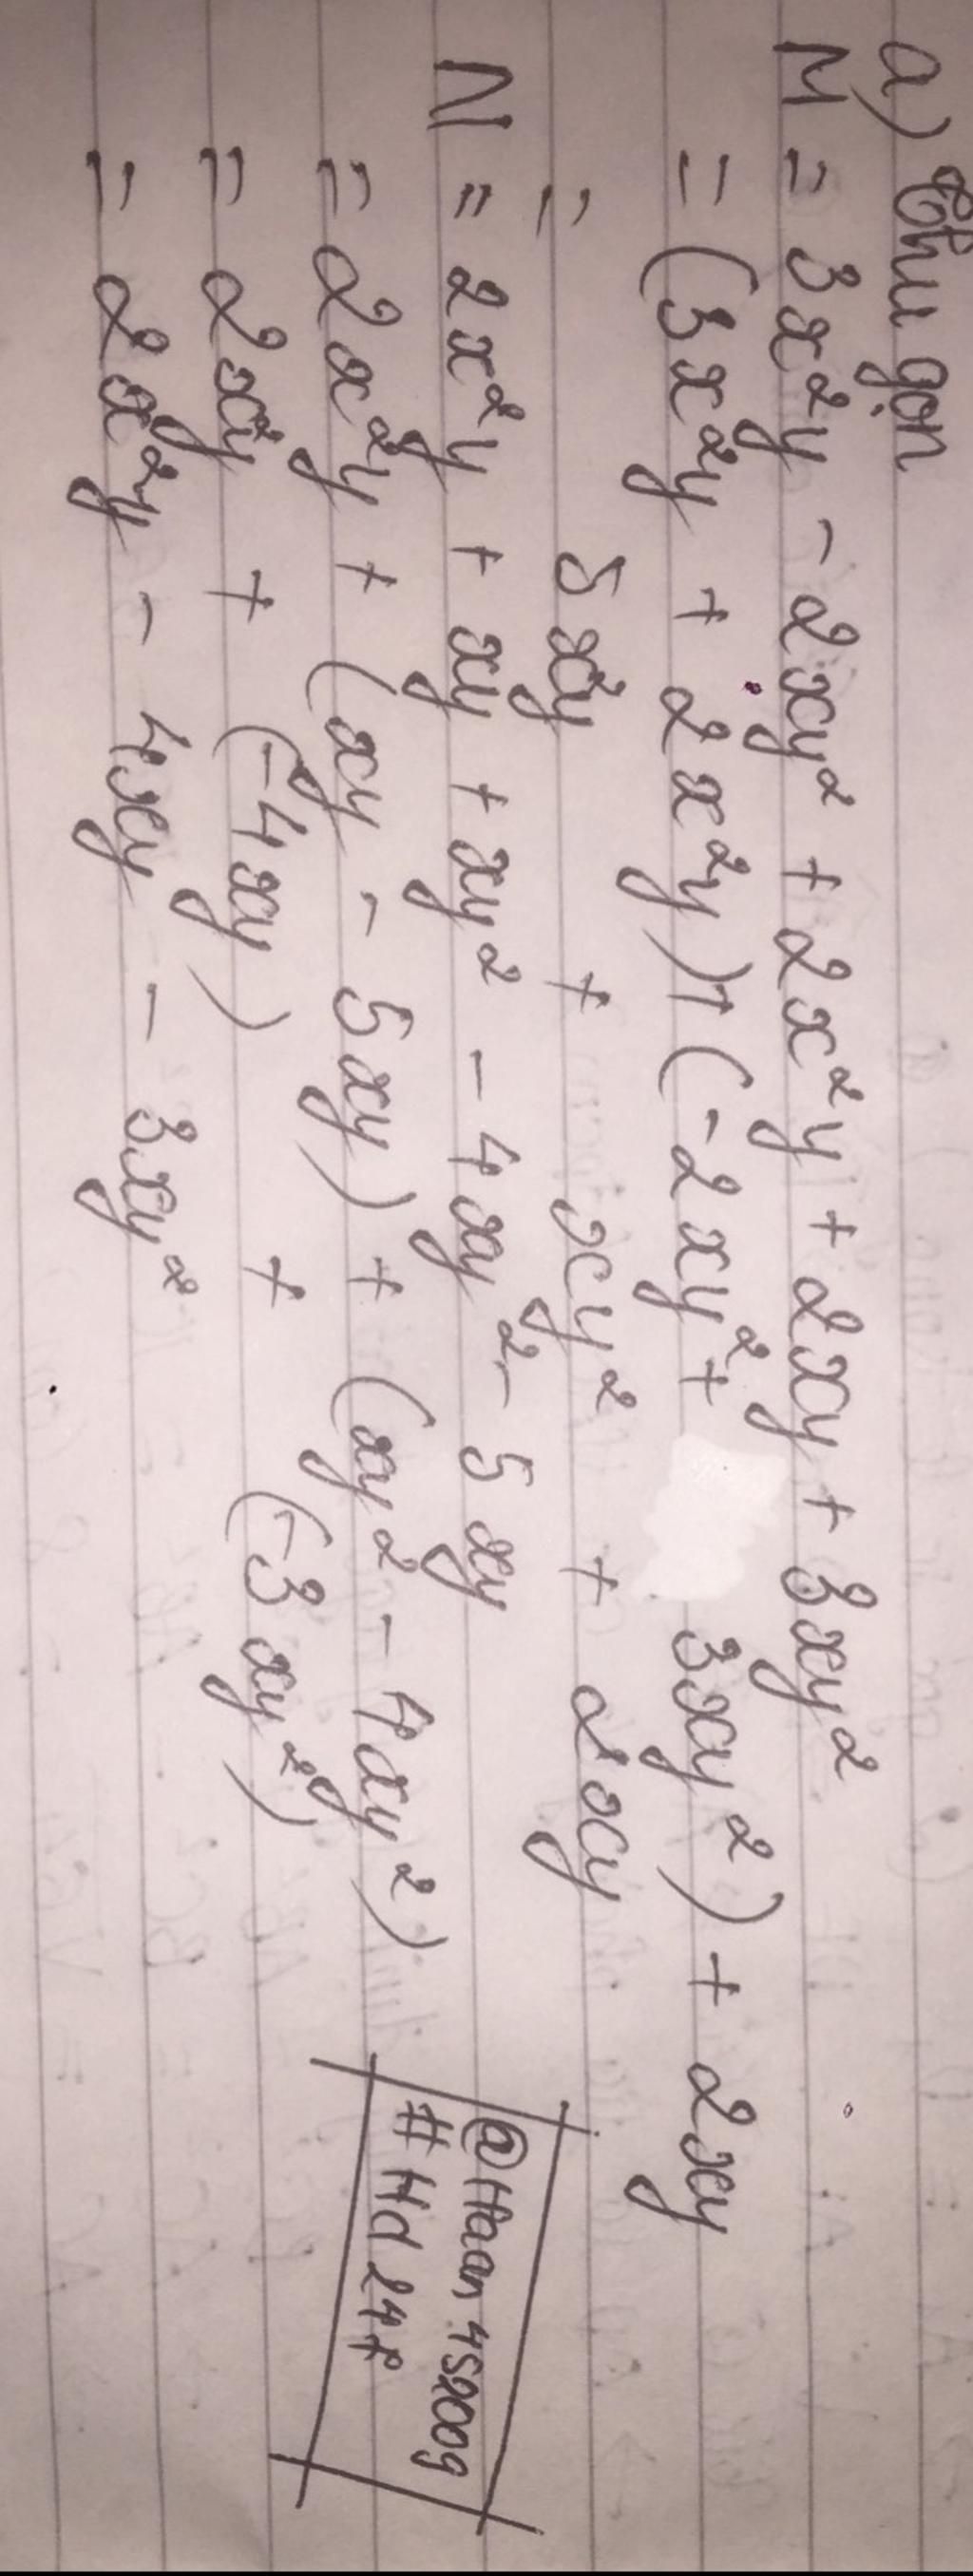 a) Thu gọn
M = 3x²y - 2xy² + 2x²y + 2xy + 3xy²
= (3x²y + 2x²y) + (-2xy² + 3xy²) + 2xy
= 5x²y + xy² + 2xy
N = 2x²y + xy + xy² - 4xy² - 5xy
= 2x²y + (xy - 5xy) + (xy² - 4xy²)
= 2x²y + (-4xy) + (-3xy²)
= 2x²y - 4xy - 3xy²
@Haan452009
#Hd247